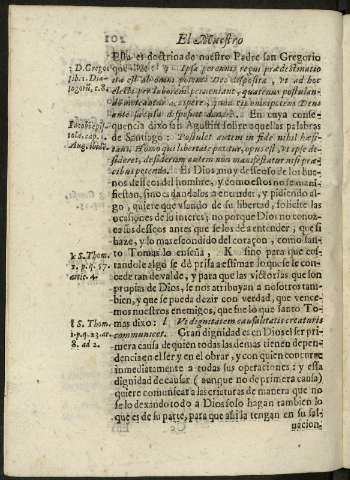 El Maestro
Esta es doctrina de nuestro Padre san Gregorio
i D. Gregor.
que dixo: i Ipsa perennis regni prædestinatio
lib. 1. Dia-
ita est ab omnipotenti Deo disposita, vt ad hoc
logorũ, c. 8.
electi per laborem perueniant, quatenus postulan-
do mereantur accipere, quod eis omnipotens Deus
ante sæcula disposuit donare. En cuya conse-
quencia dixo san Agustin sobre aquellas palabras
cap. 1.
de Santiago: Postulet autem in fide nihil hæsi-
tans, Homo qui libertate pnatur, opus est, vt ipse de-
sideret, desiderium autem non manifestatur nisi præ-
cibus petendo. Es Dios muy desseoso de los bue-
nos desseos del hombre, y como ellos no se mani-
fiestan, sino es dandolos a entender, y pidiendo al-
go, quiere que vsando de su libertad, solicite las
ocasiones de su interes; no porque Dios no conoz-
ca los desseos antes que se los dè a entender, que si
haze, y lo mas escondido del coraçon, como san-
K S. Thom.
to Tomas lo enseña, K sino para que cos-
2. p. q. 57.
tandole algo se dè prisa a estimar lo que se le con-
artic. 4.
cede tan de valde, y para que las victorias que son
propias de Dios, se nos atribuyan a nosotros tam-
bien, y que se pueda dezir con verdad, que vence-
mos nuestros enemigos, que fue lo que santo To-
l S. Thom.
mas dixo: l Vt dignitatem causalitatis creaturis
1. p. q. 23. ar.
communicet. Gran dignidad es en Dios el ser pri-
8. ad 2.
mera causa de quien todas las demas tienen depen-
dencia en el ser y en el obrar, y con quien concurre
inmediatamente a todas sus operaciones; y essa
dignidad de causar (aunque no de primera causa)
quiere comunicar a las criaturas de manera que no
se lo dexando todo a Dios solo hagan tambien lo
que es de su parte, para que assi la tengan en su sal-
uacion.